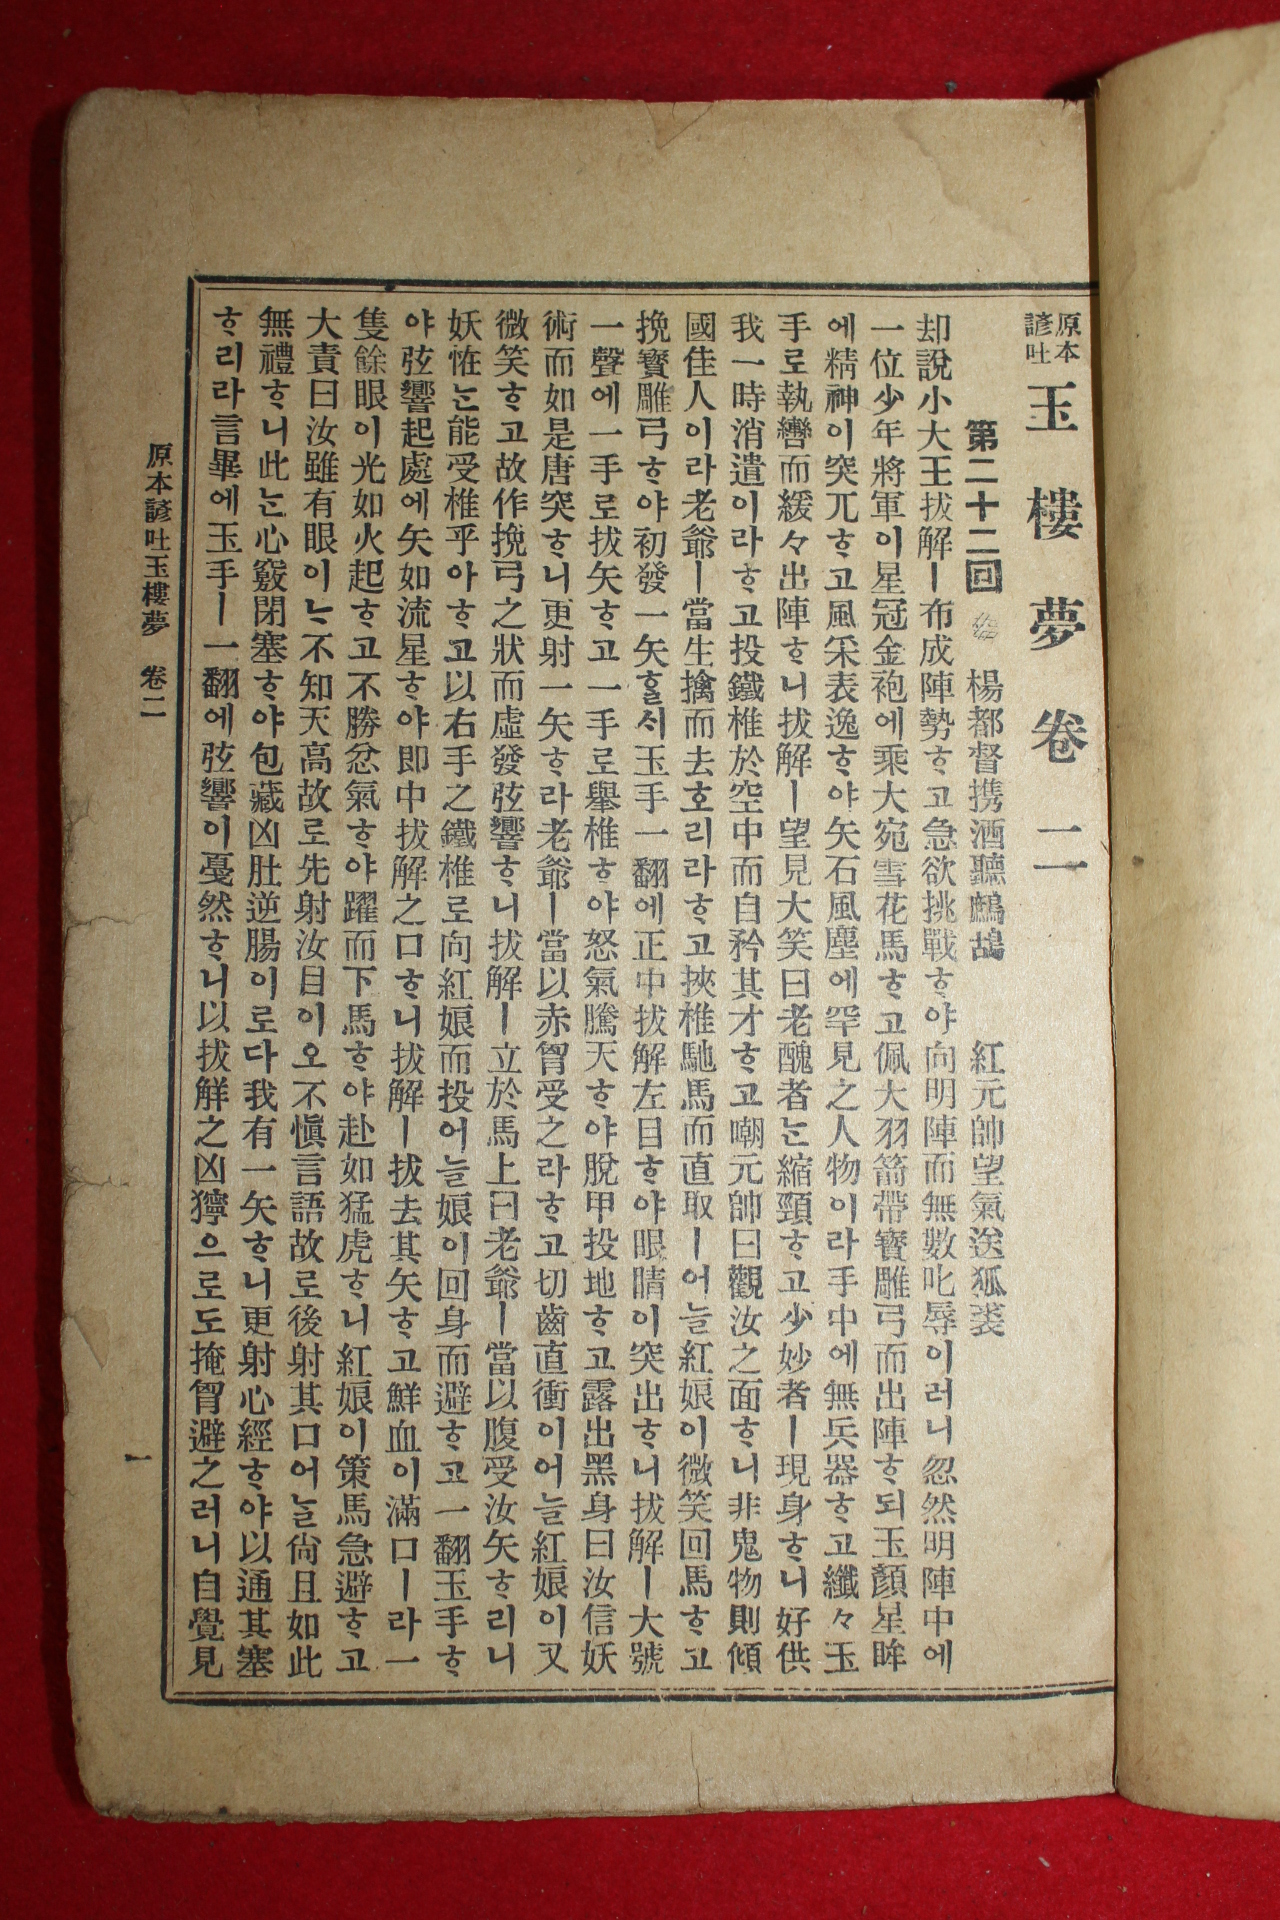 原本諺吐 玉樓夢 卷二
第二十二回 楊都督携酒聽鷓鴣 紅元帥望氣送狐裘
却說小大王拔解ㅣ布成陣勢ᄒᆞ고急欲挑戰ᄒᆞ야向明陣而無數叱辱이러니忽然明陣中에
一位少年將軍이星冠金袍에乘大宛雪花馬ᄒᆞ고佩大羽箭帶寳雕弓而出陣ᄒᆞ되玉顏星眸
에精神이突兀ᄒᆞ고風采表逸ᄒᆞ야矢石風塵에罕見之人物이라手中에無兵器ᄒᆞ고纖々玉
手로執轡而緩々出陣ᄒᆞ니拔解ㅣ望見大笑曰老醜者ᄂᆞᆫ縮頸ᄒᆞ고少妙者ㅣ現身ᄒᆞ니好供
我一時消遣이라ᄒᆞ고投鐵椎於空中而自矜其才ᄒᆞ고嘲元帥曰觀汝之面ᄒᆞ니非鬼物則傾
國佳人이라老爺ㅣ當生擒而去호리라ᄒᆞ고挾椎馳馬而直取ㅣ어ᄂᆞᆯ紅娘이微笑回馬ᄒᆞ고
挽寳雕弓ᄒᆞ야初發一矢ᄒᆞᆯᄉᆡ玉手一翻에正中拔解左目ᄒᆞ야眼睛이突出ᄒᆞ니拔解ㅣ大號
一聲에一手로拔矢ᄒᆞ고一手로擧椎ᄒᆞ야怒氣騰天ᄒᆞ야脫甲投地ᄒᆞ고露出黑身曰汝信妖
術而如是唐突ᄒᆞ니更射一矢ᄒᆞ라老爺ㅣ當以赤胷受之라ᄒᆞ고切齒直衝이어ᄂᆞᆯ紅娘이又
微笑ᄒᆞ고故作挽弓之狀而虛發弦響ᄒᆞ니拔解ㅣ立於馬上曰老爺ㅣ當以腹受汝矢ᄒᆞ리니
妖恠ᄂᆞᆫ能受椎乎아ᄒᆞ고以右手之鐵椎로向紅娘而投어ᄂᆞᆯ娘이回身而避ᄒᆞ고一翻玉手ᄒᆞ
야弦響起處에矢如流星ᄒᆞ야即中拔解之口ᄒᆞ니拔解ㅣ拔去其矢ᄒᆞ고鮮血이滿口ㅣ라一
隻餘眼이光如火起ᄒᆞ고不勝忿氣ᄒᆞ야躍而下馬ᄒᆞ야赴如猛虎ᄒᆞ니紅娘이策馬急避ᄒᆞ고
大責曰汝雖有眼이ᄂᆞ不知天高故로先射汝目이오不愼言語故로後射其口어ᄂᆞᆯ尙且如此
無禮ᄒᆞ니此ᄂᆞᆫ心竅閉塞ᄒᆞ야包藏凶肚逆腸이로다我有一矢ᄒᆞ니更射心經ᄒᆞ야以通其塞
ᄒᆞ리라言畢에玉手ㅣ一翻에弦響이戞然ᄒᆞ니以拔解之凶獰으로도掩胷避之러니自覺見
原本諺吐玉樓夢 卷二
一